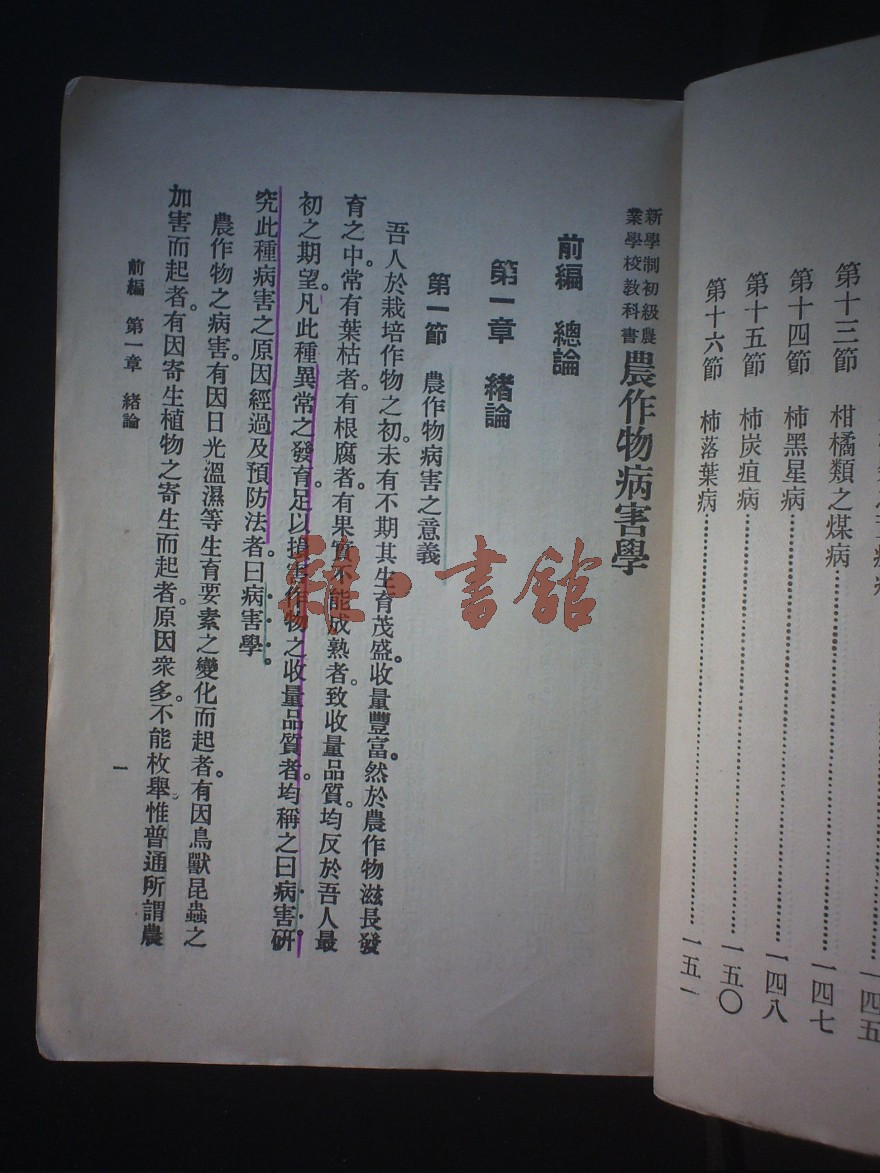 第十三節 柑橘類之煤病 一四七
第十四節 柿黑星病 一四八
第十五節 柿炭疽病 一五〇
第十六節 柿落葉病 一五一
一四五
新學制初級農
業學校教科書 農作物病害學
前編 總論
第一章 緒論
第一節 農作物病害之意義
吾人於栽培作物之初。未有不期其生育茂盛。收量豐富。然於農作物滋長發
育之中。常有葉枯者。有根腐者。有果實不能成熟者。致收量品質。均反於吾人最
初之期望。凡此種異常之發育。足以損害作物之收量品質者。均稱之曰病害。研
究此種病害之原因經過及預防法者。曰病害學。
農作物之病害。有因日光溫濕等生育要素之變化而起者。有因鳥獸昆蟲之
加害而起者。有因寄生植物之寄生而起者。原因衆多。不能枚舉。惟普通所謂農
前編 第一章 緒論
一
雜·書館